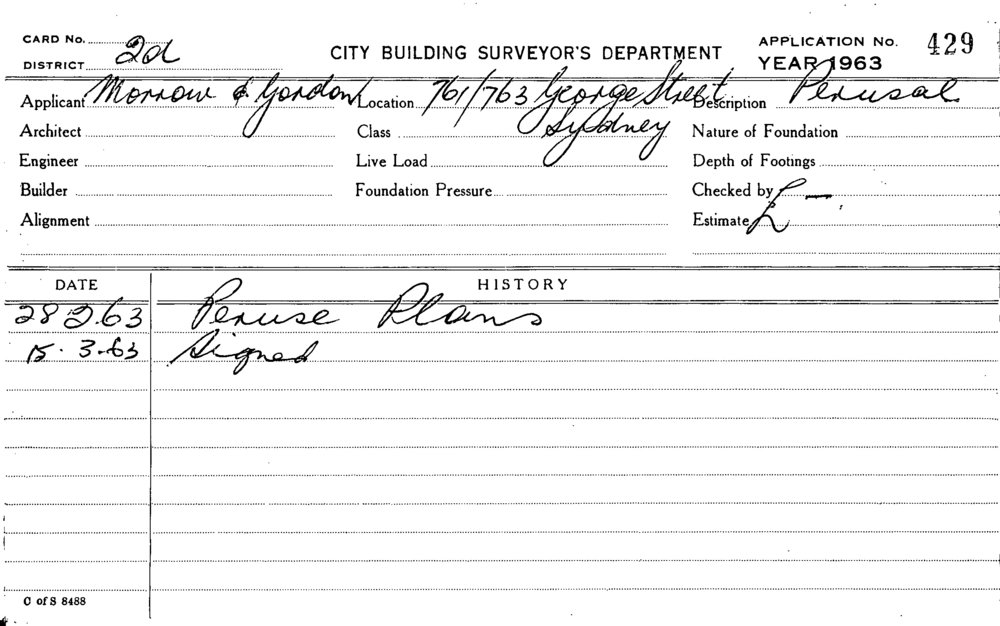 CARD No. 2d
CITY BUILDING SURVEYOR'S DEPARTMENT
APPLICATION No. 429
DISTRICT
YEAR 1963
Applicant Morrow & Gordon Location 761/763 George Street Description Perusal
Sydney
Architect Class Nature of Foundation
Engineer Live Load Depth of Footings
Builder Foundation Pressure Checked by £ —
Alignment Estimate £
DATE HISTORY
28 2.63 Peruse Plans
15. 3.63 Signed
C of S 8488